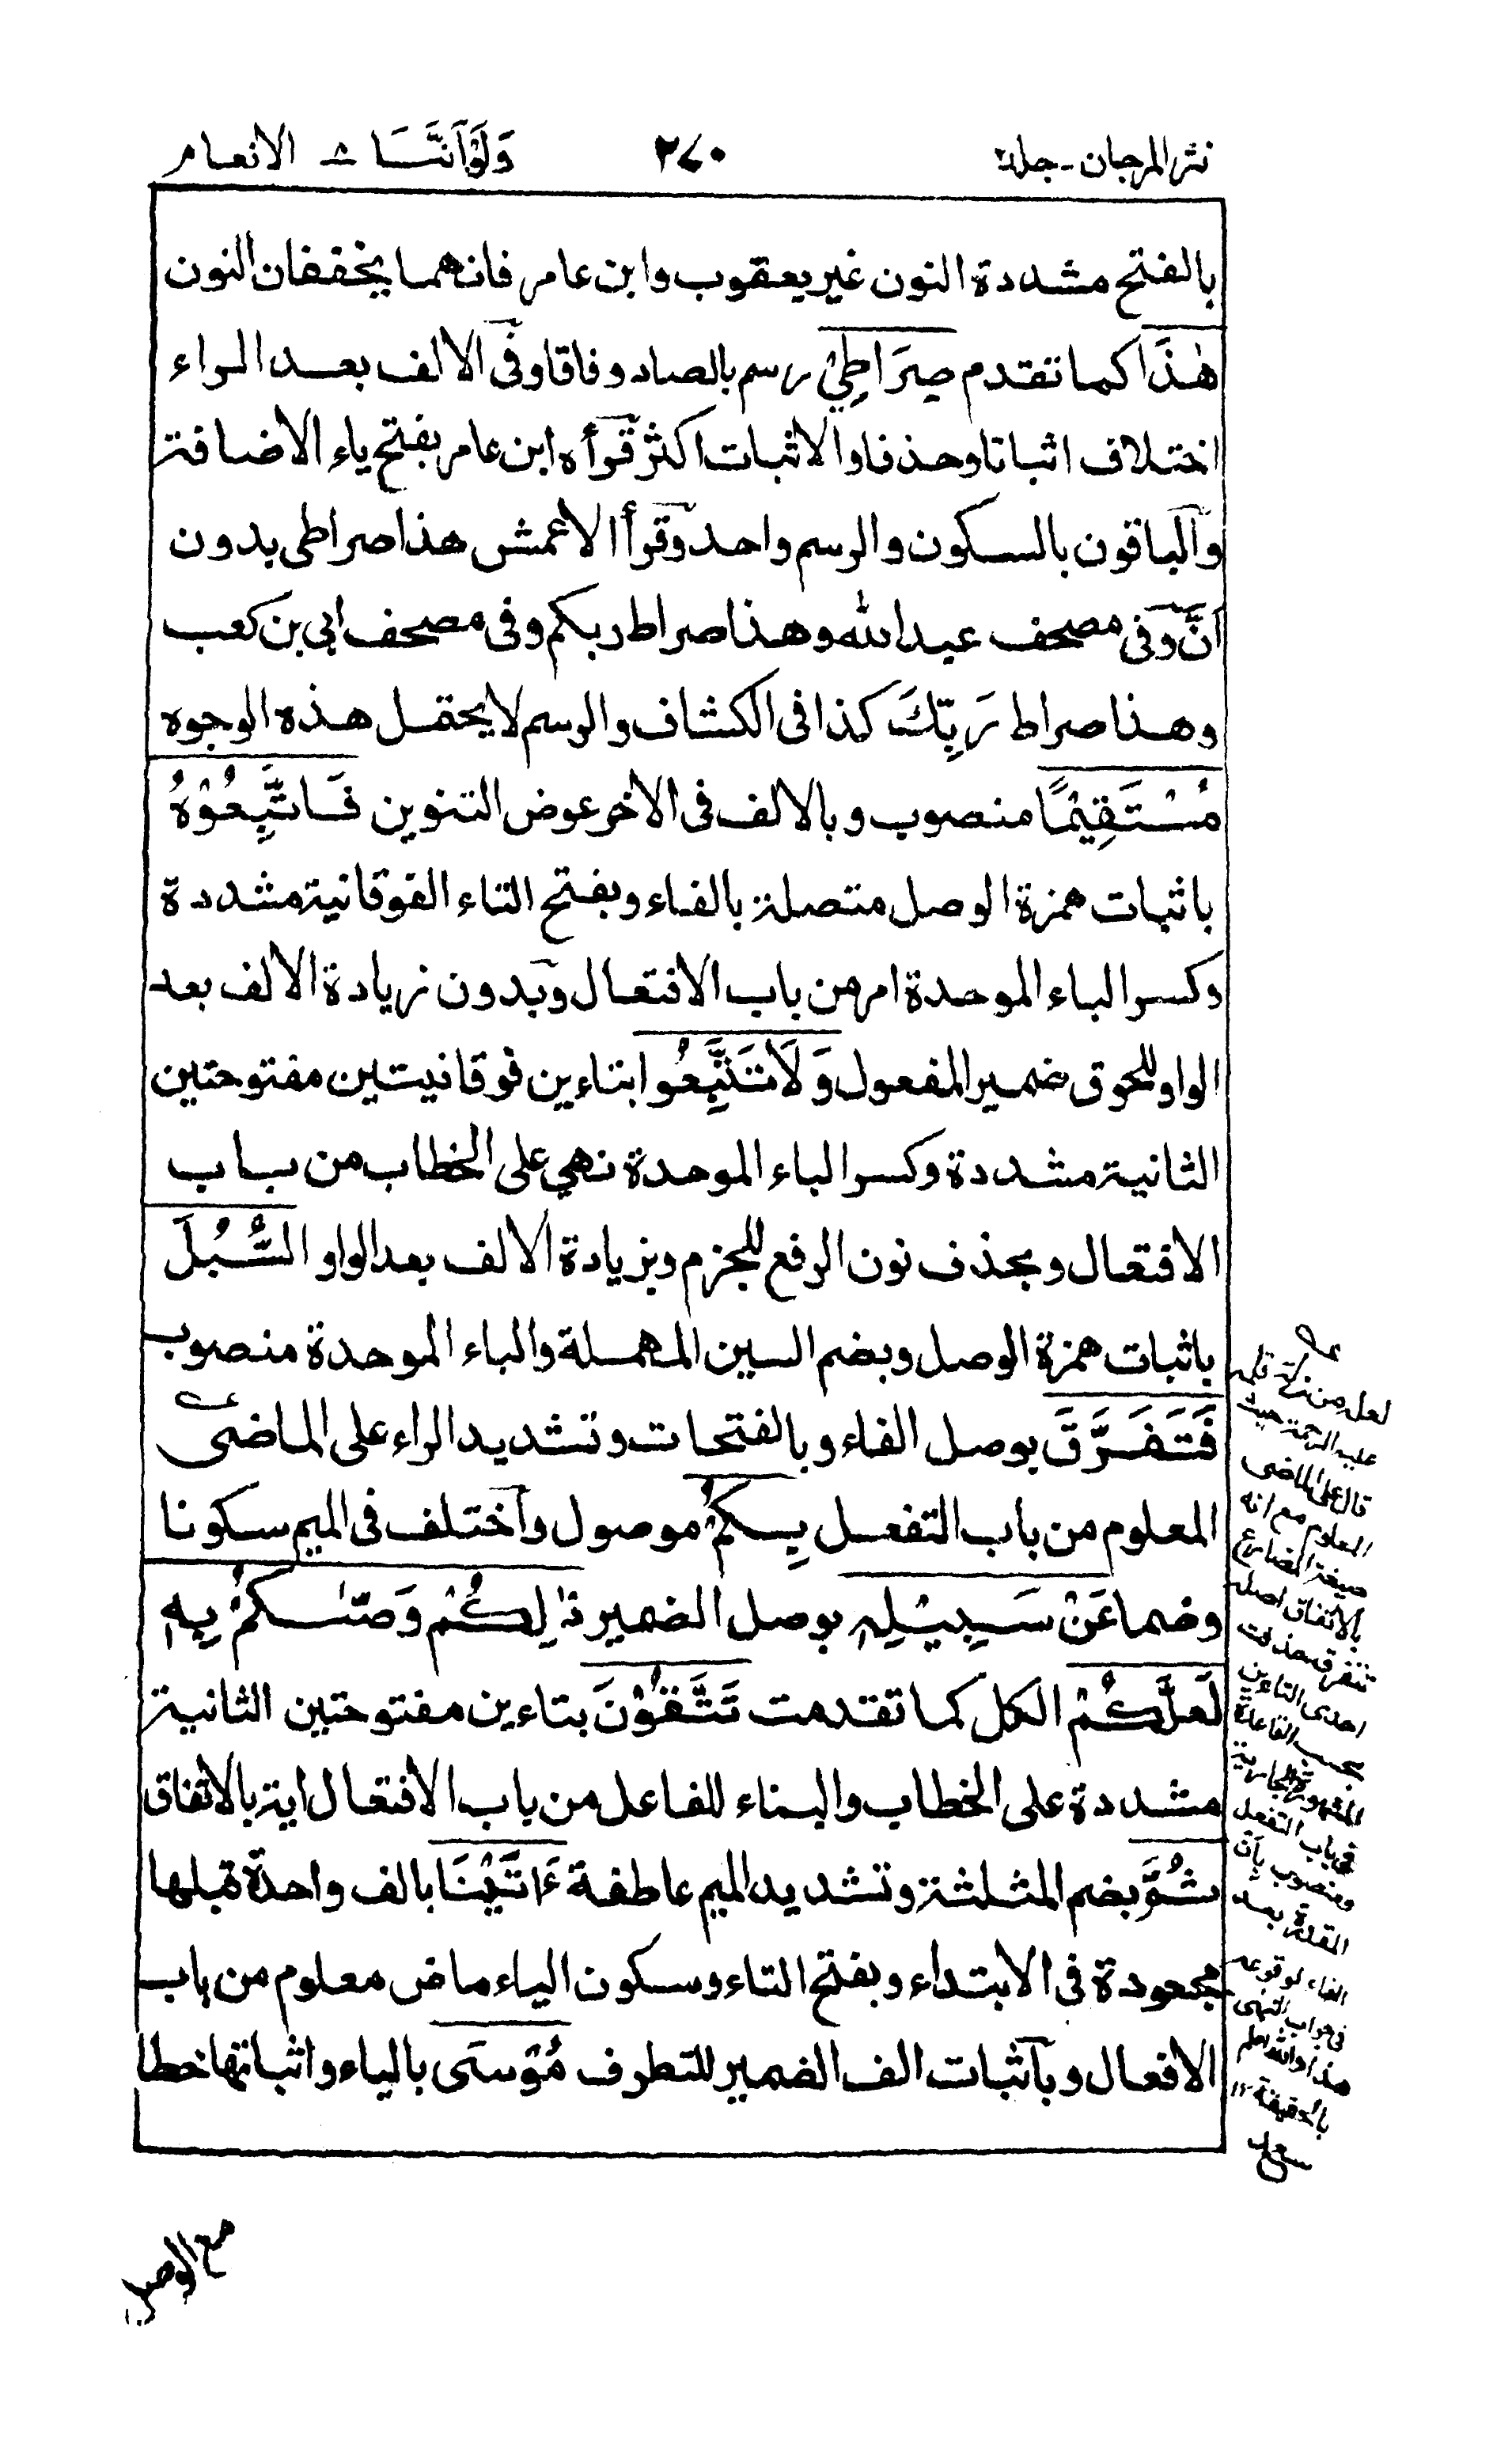 نثر المرجان - جلد٢
٢٧٠
وَلَوْ اَنَّنَا ٨ الانعام
بالفتح مشددة النون غير يعقوب وابن عامر فانهما يخففان النون
هٰذَا كما تقدم صِرَاطِيْ رسم بالصاد وفاقا وفى الالف بعد الراء
اختلاف اثباتا وحذفا والاثبات اكثر قرأه ابن عامر بفتح ياء الاضافة
والباقون بالسكون والرسم واحد وقرأ الاعمش هذا صراطى بدون
اَنَّ وفى مصحف عبد الله وهذا صراط ربكم وفى مصحف ابى بن كعب
وهذا صراط رَبِّكَ كذا فى الكشاف والرسم لا يحتمل هذه الوجوه
مُسْتَقِيْمًا منصوب وبالالف فى الاخر عوض التنوين فَاتَّبِعُوْهُ
باثبات همزة الوصل متصلة بالفاء وبفتح التاء الفوقانية مشددة
وكسر الباء الموحدة امر من باب الافتعال وبدون زيادة الالف بعد
الواو للحوق ضمير المفعول وَلَا تَتَّبِعُوا بتاءين فوقانيتين مفتوحتين
الثانية مشددة وكسر الباء الموحدة نهى على الخطاب من باب
الافتعال وبحذف نون الرفع للجزم وبزيادة الالف بعد الواو السُّبُلَ
باثبات همزة الوصل وبضم السين المهملة والباء الموحدة منصوب
فَتَفَرَّقَ بوصل الفاء وبالفتحات وتشديد الراء على الماضى
المعلوم من باب التفعل بِكُمْ موصول واختلف فى الميم سكونا
وضما عَنْ سَبِيْلِهٖ بوصل الضمير ذٰلِكُمْ وَصّٰىكُمْ بِهٖ
لَعَلَّكُمْ الكل كما تقدمت تَتَّقُوْنَ بتاءين مفتوحتين الثانية
مشددة على الخطاب والبناء للفاعل من باب الافتعال اية بالاتفاق
ثُمَّ بضم المثلثة وتشديد الميم عاطفة ءَاتَيْنَا بالف واحدة قبلها
مجعودة فى الابتداء وبفتح التاء وسكون الياء ماض معلوم من باب
الافعال وباثبات الف الضمير للتطرف مُوْسَى بالياء واثباتها خطا
لعل من زلة قلمه
عليه الرحمة حيث
قال على الماضى
المعلوم مع انه
صيغة المضارع
بالاتفاق اصله
تتفرق حذفت
احدى التاءين
بحسب القاعدة
المشهورة الجارية
فى باب التفعل
ومنصوب بأن
المقدرة بعد
الفاء لوقوعه
فى جواب النهى
هذا والله اعلم
بالحقيقة ١٢
مع الوصل